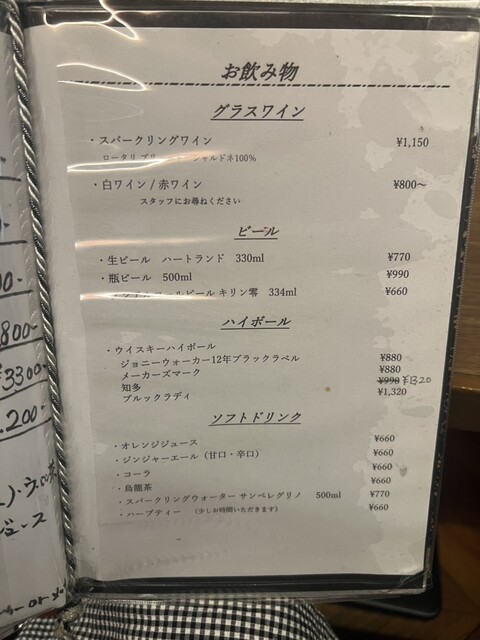 お飲み物
グラスワイン
・スパークリングワイン ¥1,150
ロータリ ブリ シャルドネ100%
・白ワイン / 赤ワイン ¥800〜
スタッフにお尋ねください
ビール
・生ビール ハートランド 330ml ¥770
・瓶ビール 500ml ¥990
ールビール キリン零 334ml ¥660
ハイボール
・ウイスキーハイボール
ジョニーウォーカー12年ブラックラベル ¥880
メーカーズマーク ¥880
知多 ¥990 ¥1320
ブルックラディ ¥1,320
ソフトドリンク
・オレンジジュース ¥660
・ジンジャーエール（甘口・辛口） ¥660
・コーラ ¥660
・烏龍茶 ¥660
・スパークリングウォーター サンペレグリノ 500ml ¥770
・ハーブティー （少しお時間いただきます） ¥660
00-
800-
¥3300-
.200-